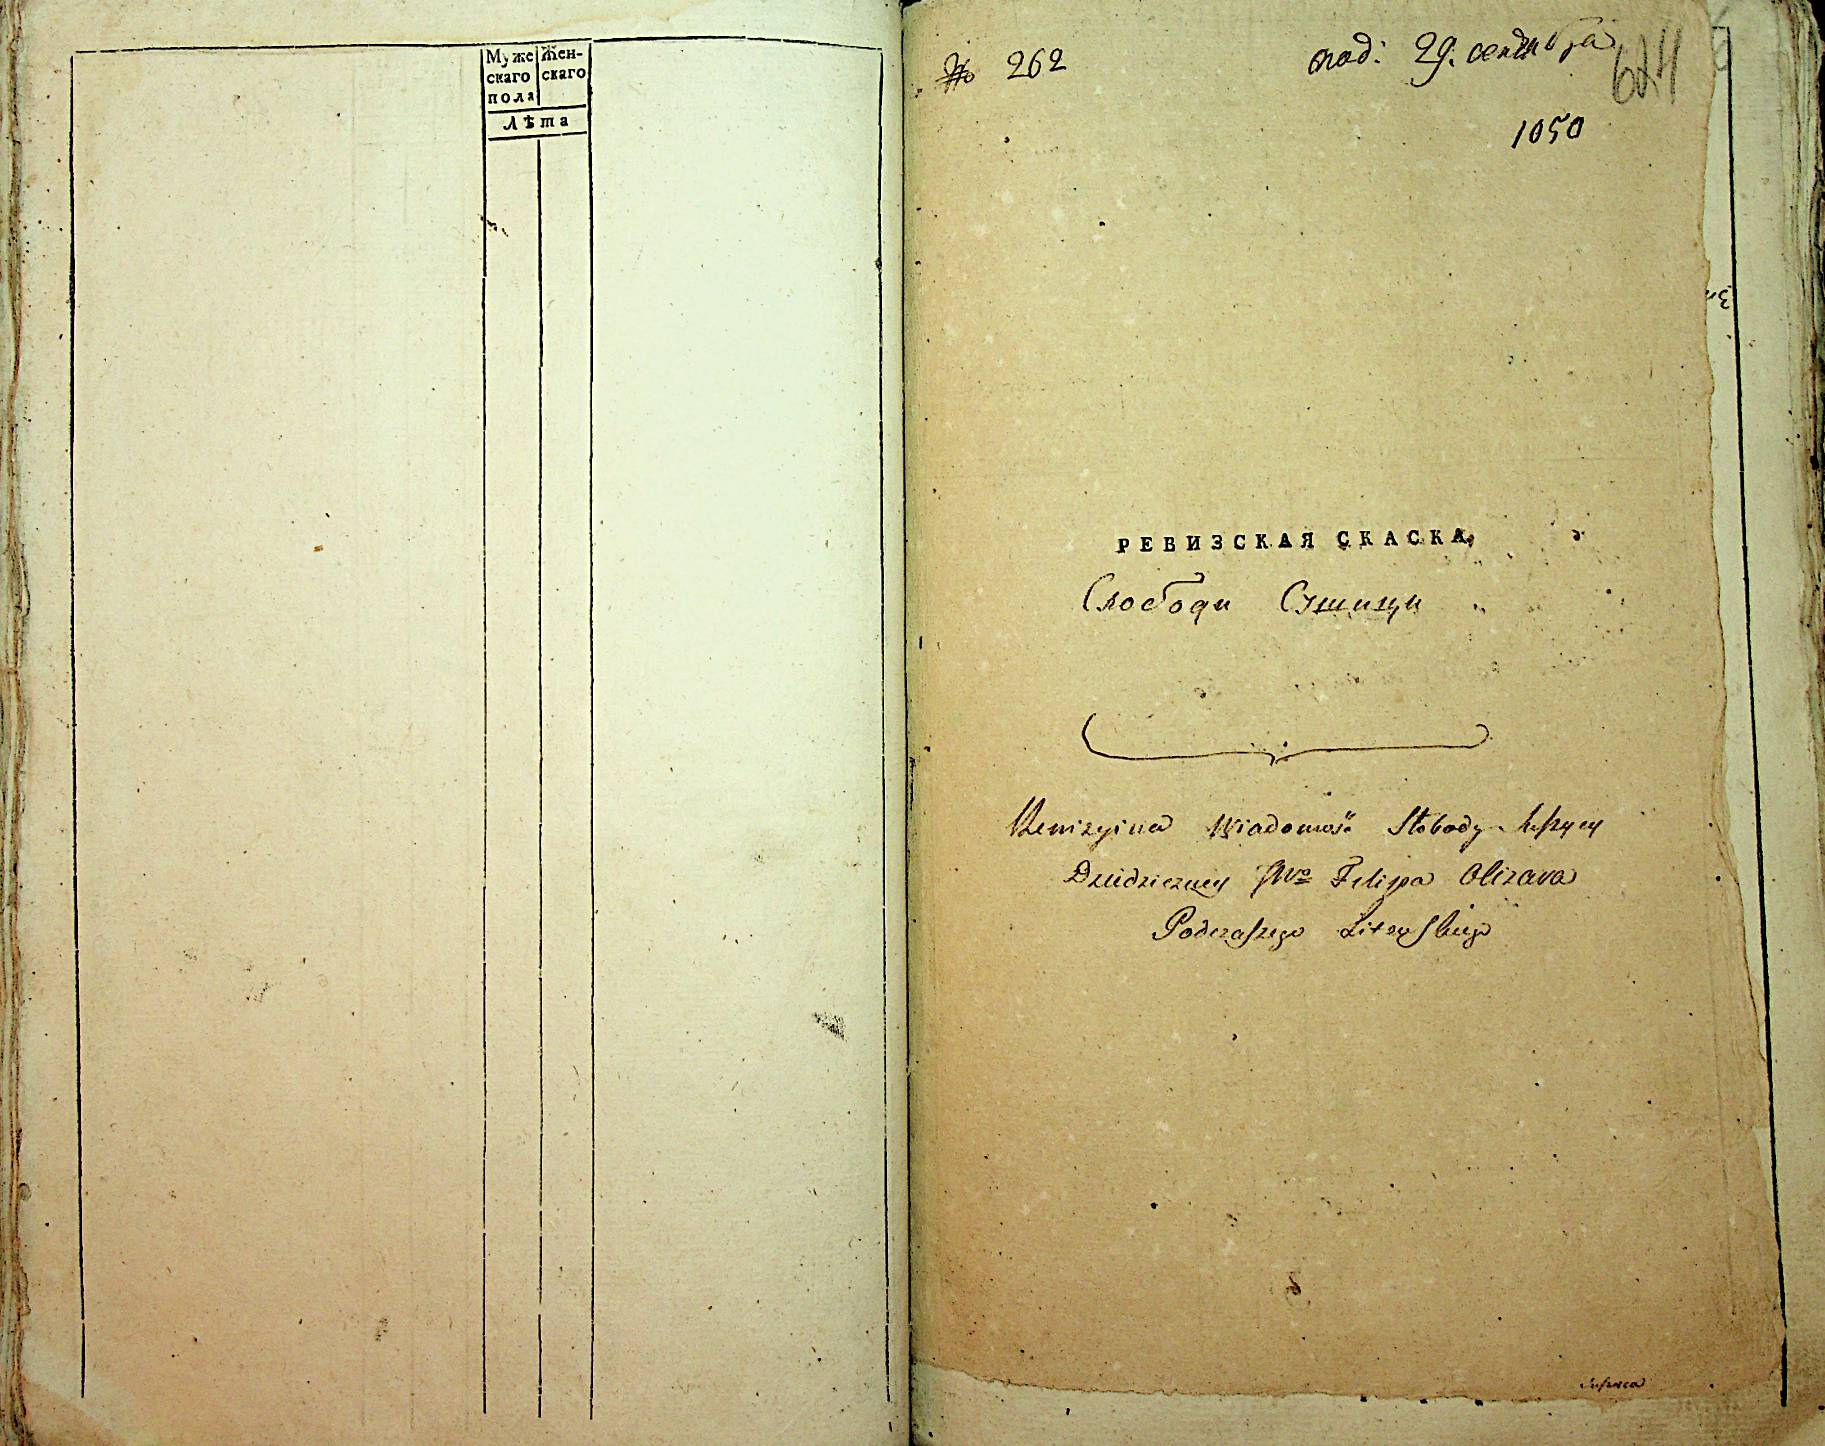 Муже
скаго
пола
Жен-
скаго
Лѣта
№ 262
под: 29. сентября
624
1050
РЕВИЗСКАЯ СКАСКА,
Слободи Сушищи
Rewizyina Wiadomość Słobody
Dziedziczney JWo Filipa Olizara
Podczaszego Litewskiego